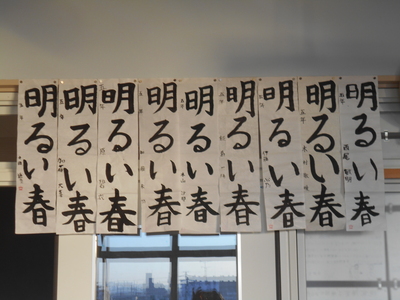 明るい春
明るい春
明るい春
明るい春
明るい春
明るい春
明るい春
明るい春
明るい春